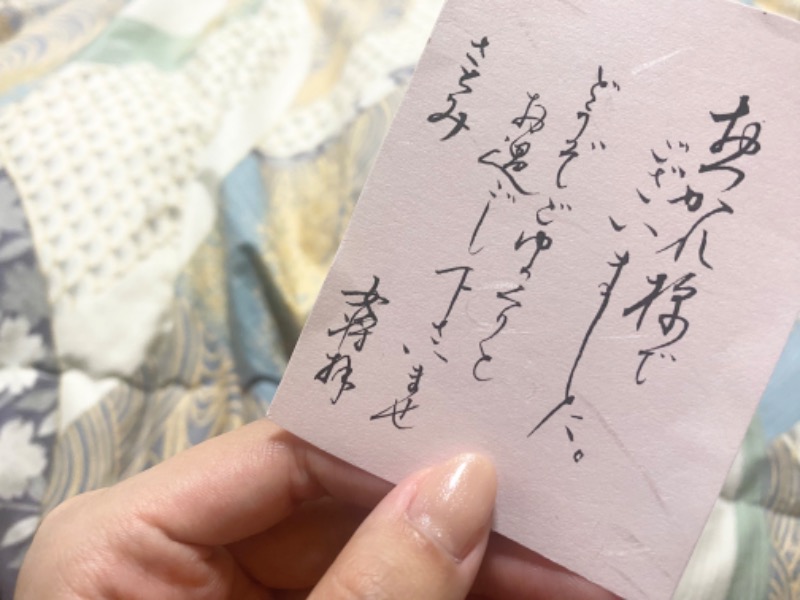 おつかれ様で
ございました。
どうぞごゆっくりと
お過ごし下さいませ
さとみ
女将拝